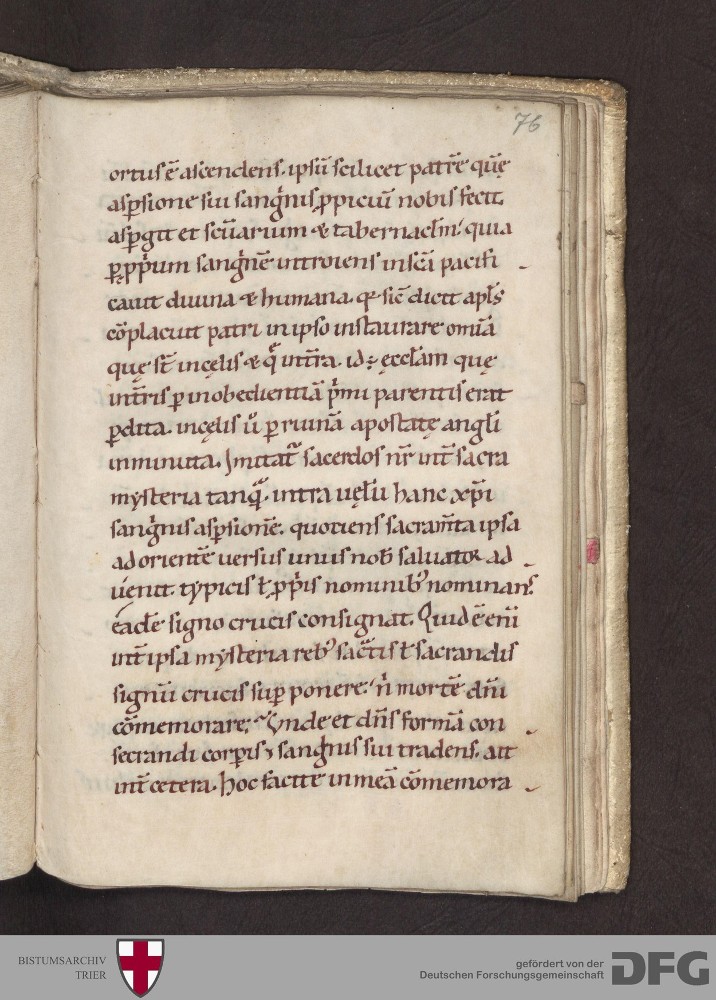 76
ortus ē ascendens. ipsū scilicet patrē quē
asꝑsione sui sang̍nis ꝓpiciū nobis fecit.
asꝑgit et sc̄uarium & tabernacl̄m. quia
ꝑ ꝓp̍um sang̍nē introiens in sc̄a pacifi
cauit diuina & humana. qr̄ sic̄ dicit apl̄s
cōplacuit patri in ipso instaurare omīa
quę st̄ in cęlis & q̄ in tr̄a. id ÷ ęccl̄am quę
in tr̄is ꝑ inobedientiā p̍mi parentis erat
ꝑdita. in cęlis ū̓ ꝑ ruinā apostatę angl̄i
inminuta. Imitat᷑ sacerdos nr̄ int̄ sacra
mysteria tanq̄. intra uęlū hanc xp̄i
sang̍nis asꝑsionē. quotiens sacram̄ta ipsa
ad orientē uersus unus nob̄ saluator ad
uenit. typicis ł ꝓp̍is nominib᷒ nominans᷒
eadē signo crucis consignat. Quid ē eni̅
int̄ ipsa mysteria reb᷒ sac̄tis ł sacrandis
signū crucis suꝑ ponere. n̄ mortē dn̄i
cōmemorare; Vnde et dn̄s formā con
secrandi corꝑis ⁊ sang̍nis sui tradens. ait
int̄ cetera. hoc facite in meā cōmemora
BISTUMSARCHIV
TRIER
gefördert von der
Deutschen Forschungsgemeinschaft
DFG